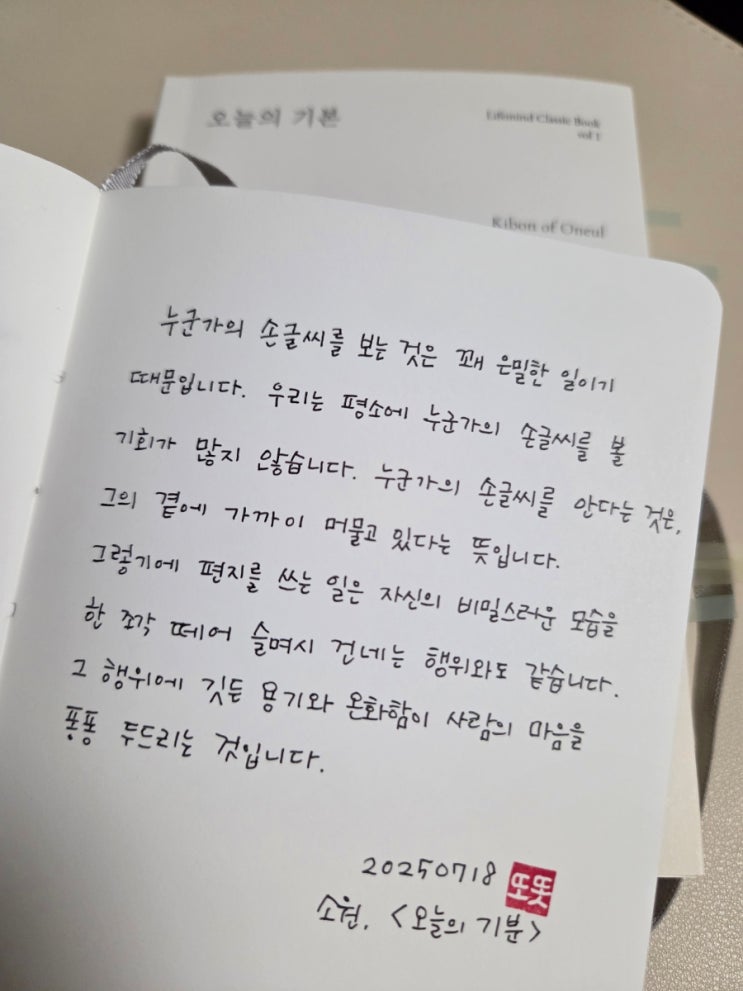 오늘의 기본
Editmind Classic Book
vol 1
Kibon of Oneul
누군가의 손글씨를 보는 것은 꽤 은밀한 일이기
때문입니다. 우리는 평소에 누군가의 손글씨를 볼
기회가 많지 않습니다. 누군가의 손글씨를 안다는 것은,
그의 곁에 가까이 머물고 있다는 뜻입니다.
그렇기에 편지를 쓰는 일은 자신의 비밀스러운 모습을
한 조각 떼어 슬며시 건네는 행위와도 같습니다.
그 행위에 깃든 용기와 온화함이 사람의 마음을
퐁퐁 두드리는 것입니다.
20250718 또또
소원, <오늘의 기분>